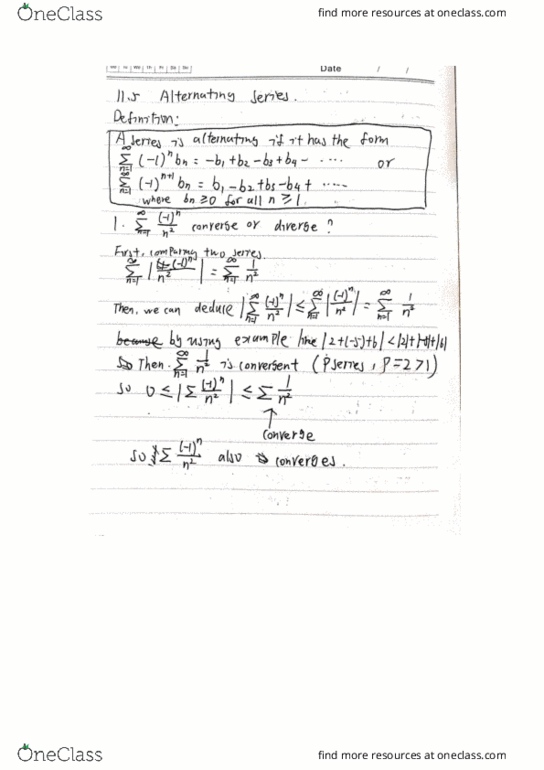 OneClass
find more resources at oneclass.com
Date / /
11.5 Alternating Series.
Definition:
A series is alternating if it has the form
∞∑n=1 (-1)^n bn = -b1 + b2 - b3 + b4 - ····· or
∞∑n=1 (-1)^(n+1) bn = b1 - b2 + b3 - b4 + ·····
where bn ≥ 0 for all n ≥ 1.
1. ∞∑n=1 (-1)^n/n² converge or diverge?
First, comparing two series.
∞∑n=1 |(-1)^n/n²| = ∞∑n=1 1/n²
Then, we can deduce |∞∑n=1 (-1)^n/n²| ≤ ∞∑n=1 |(-1)^n/n²| = ∞∑n=1 1/n²
because by using example like |2+(-5)+6| < |2|+|-5|+|6|
So Then ∞∑n=1 1/n² is convergent (P series, P=2>1)
so 0 ≤ |∑ (-1)^n/n²| ≤ ∑ 1/n²
↑
converge
so ∑ (-1)^n/n² also converges.
OneClass
find more resources at oneclass.com